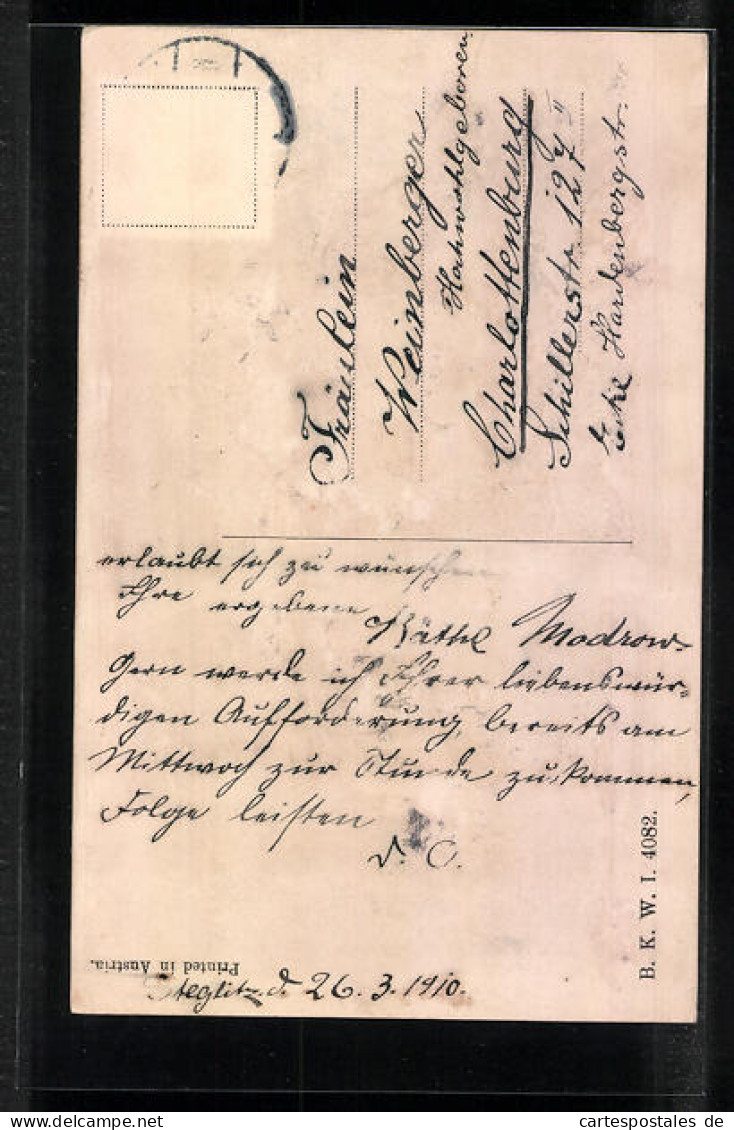 Fräulein
Weinberger
Hochwohlgeboren
Charlottenburg
Schillerstr. 127 II
Ecke Hardenbergstr.
erlaubt sich zu wünschen
Ihre ergebene
Käthe Modrow.
Gern werde ich Ihrer liebenswür=
digen Aufforderung, bereits am
Mittwoch zur Stunde zu kommen,
Folge leisten
d. O.
Steglitz d. 26.3.1910.
Printed in Austria.
B. K. W. I. 4082.
cartespostales de
cartespostales.de